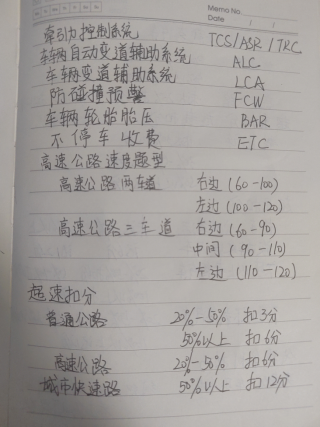 Memo No.
Date / /
牵引力控制系统 TCS/ASR/TRC
车辆自动变道辅助系统 ALC
车辆变道辅助系统 LCA
防碰撞预警 FCW
车辆轮胎胎压 BAR
不停车收费 ETC
高速公路速度题型
高速公路两车道 右边(60-100)
左边(100-120)
高速公路三车道 右边(60-90)
中间(90-110)
左边(110-120)
超速扣分
普通公路 20%-50% 扣3分
50%以上 扣6分
高速公路 20%-50% 扣6分
城市快速路 50%以上 扣12分